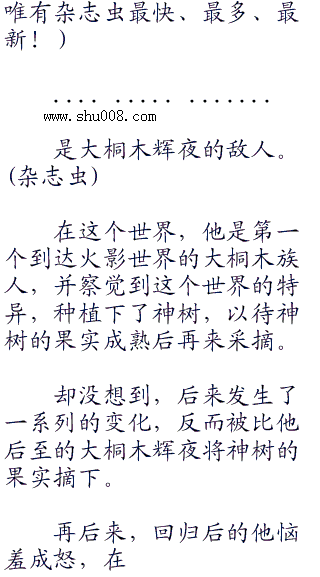 唯有杂志虫最快、最多、最
新！)
.... ..... .......
www.shu008.com
是大桐木辉夜的敌人。
(杂志虫)
在这个世界，他是第一
个到达火影世界的大桐木族
人，并察觉到这个世界的特
异，种植下了神树，以待神
树的果实成熟后再来采摘。
却没想到，后来发生了
一系列的变化，反而被比他
后至的大桐木辉夜将神树的
果实摘下。
再后来，回归后的他恼
羞成怒，在